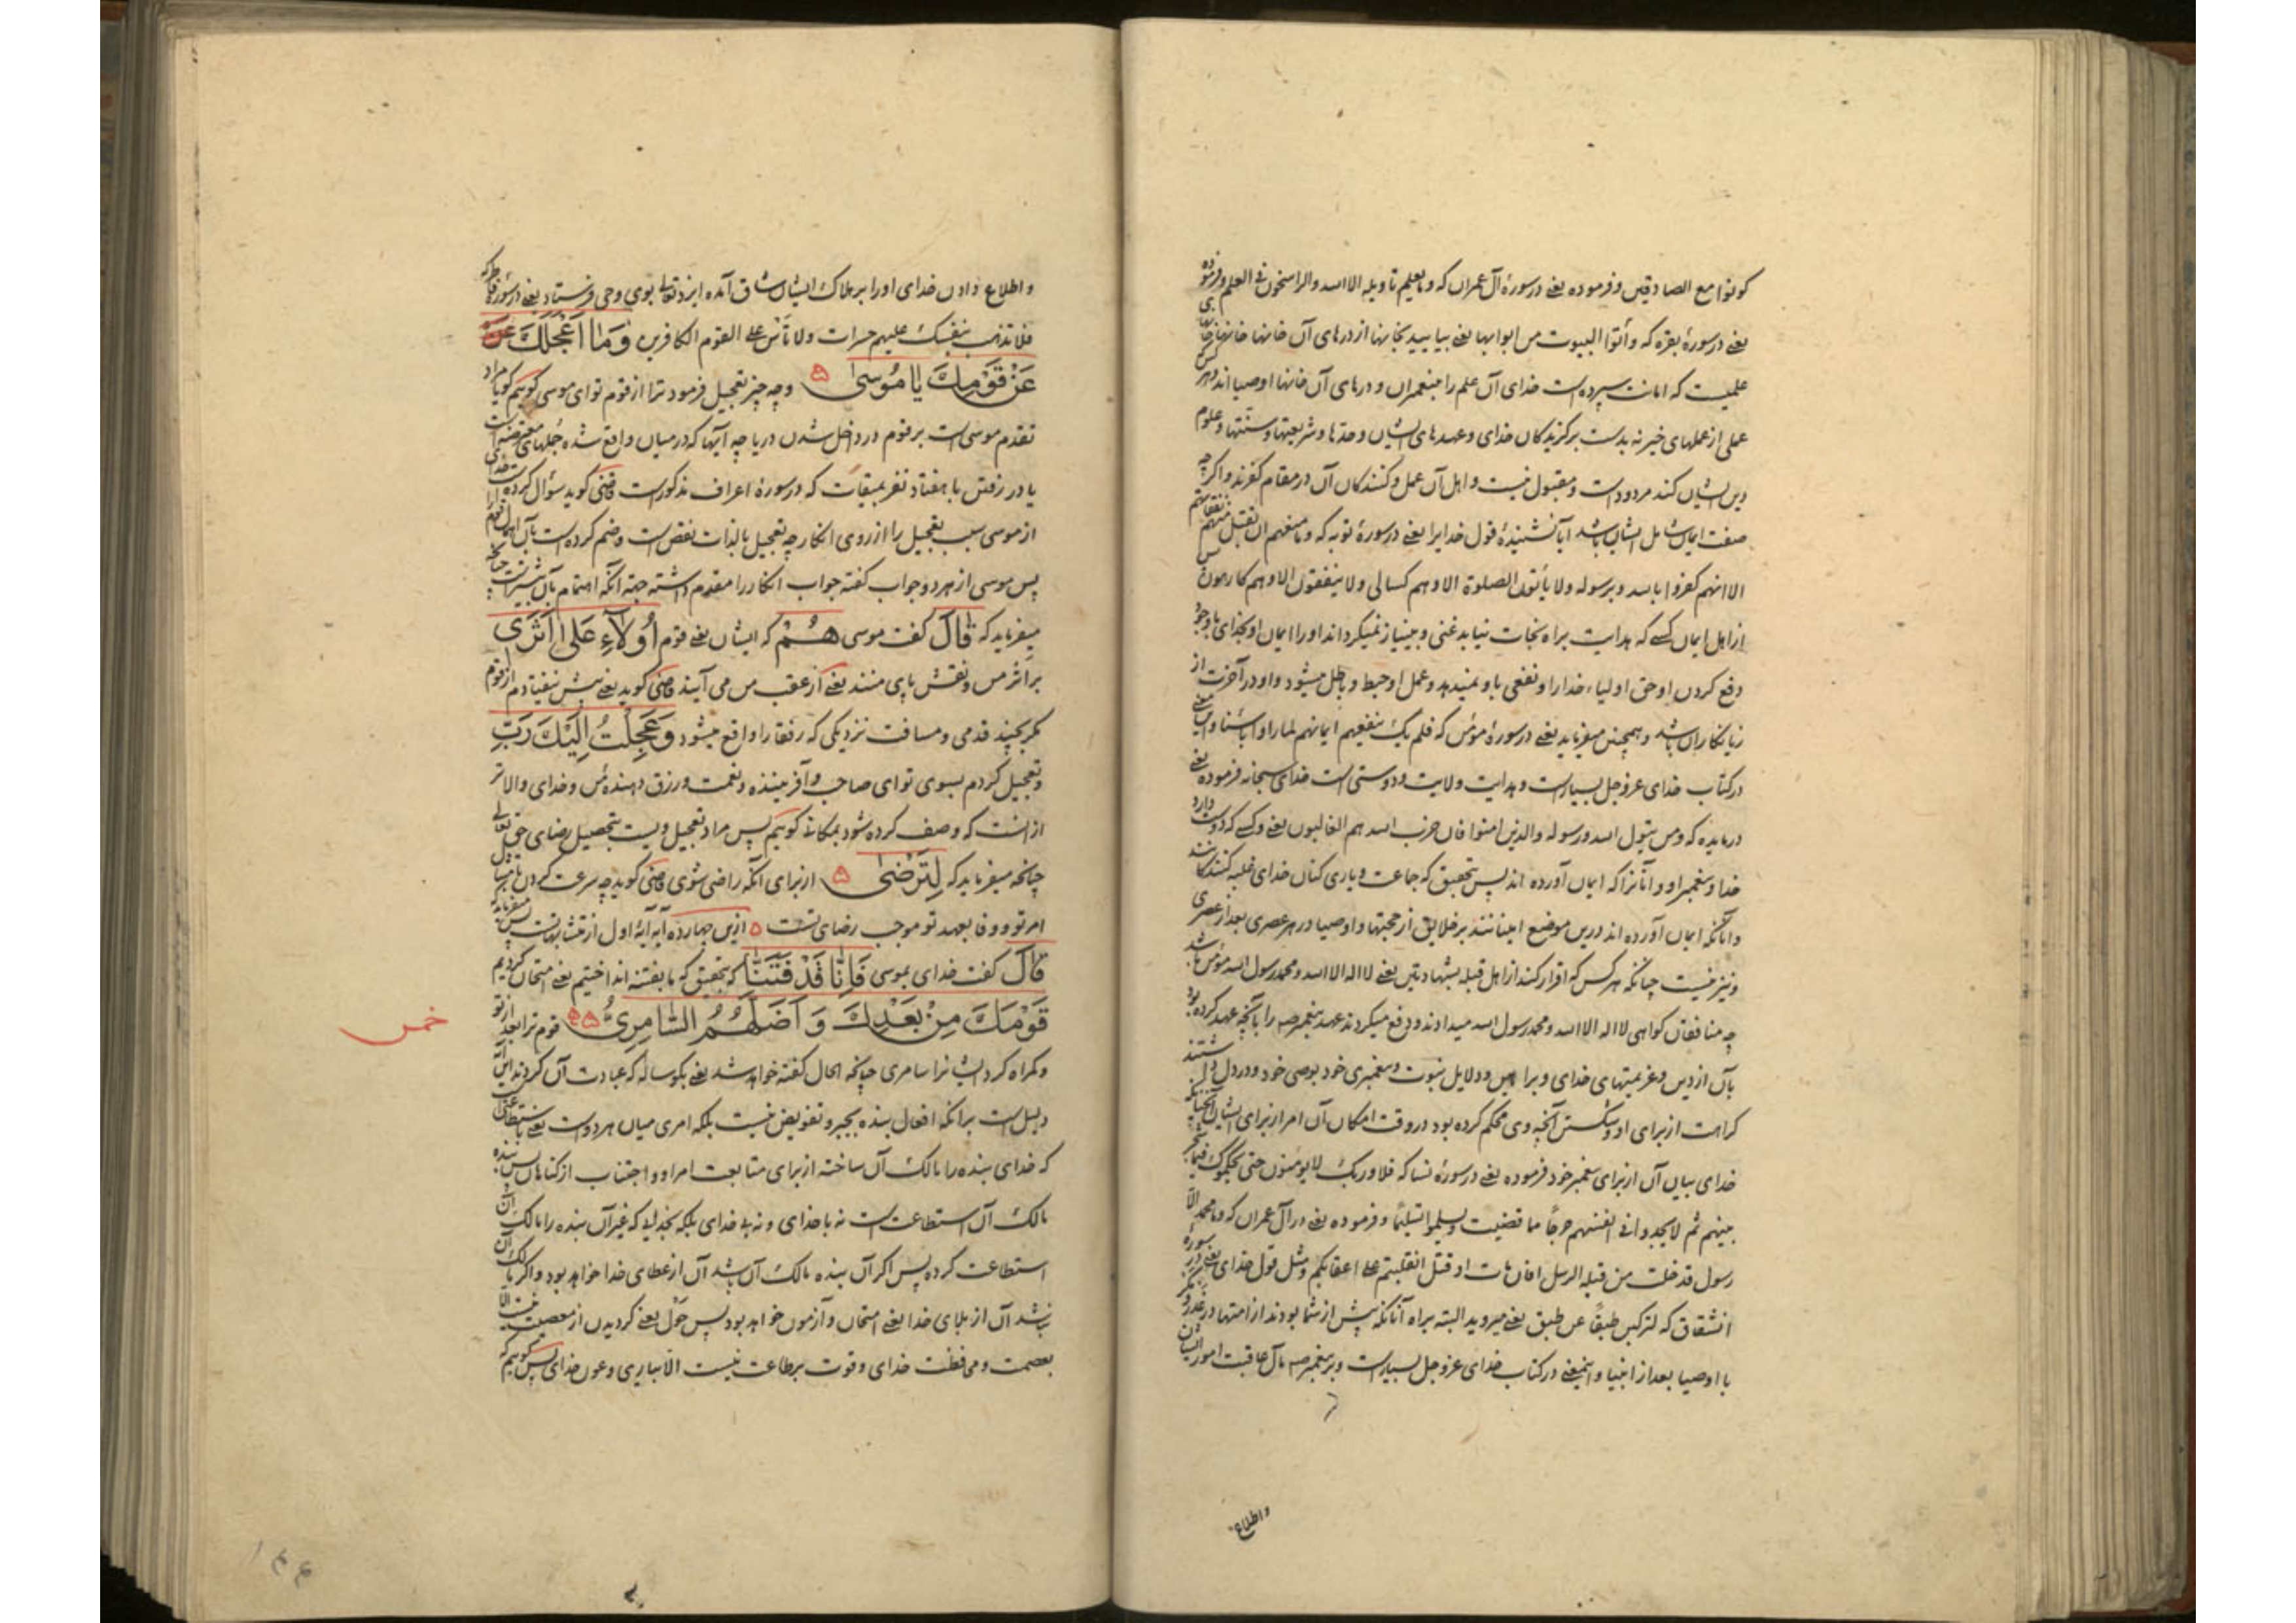 کونوا مع الصادقین و فرموده یعنی در سورهٔ آل عمران که و ما یعلم تأویله الا الله و الراسخون فی العلم و فرموده
یعنی در سورهٔ بقره که و أتوا البیوت من ابوابها یعنی بیایید بخانها از درهای آن خانها خانهای
علمیست که امانت سپرده است خدای آن علم را پیغمبران و درهای آن خانها اوصیااند و هر کس
عملی از عملهای خیر نه بدست برگزیدکان خدای و عهدهای ایشان و حدها و شریعتها و سنتها و علوم
دین ایشان کند مردود است و مقبول نیست و اهل آن عمل و کنندکان آن در مقام کفرند و اگرچه
صفت ایمان شامل ایشان باشد آیا نشنیدهٔ قول خدایرا یعنی در سورهٔ توبه که و ما منعهم ان تقبل منهم نفقاتهم
الا انهم کفروا بالله و برسوله و لا یأتون الصلوة الا و هم کسالی و لا ینفقون الا و هم کارهون پس
از اهل ایمان کسی که هدایت براه نجات نیابد غنی و بینیاز نمیگرداند او را ایمان او بخدای با وجود
دفع کردن او حق اولیاء خدا را و نفعی باو نمیدهد و عمل او حبط و باطل میشود و او در آخرت از
زیانکاران باشد و همچنین میفرماید یعنی در سورهٔ مؤمن که فلم یک ینفعهم ایمانهم لما راوا بأسنا و این معنی
در کتاب خدای عز و جل بسیارست و هدایت ولایت و دوستی است خدای سبحانه فرموده یعنی
در مایده که و من یتول الله و رسوله و الذین امنوا فان حزب الله هم الغالبون یعنی و کسی که دوست دارد
خدا و پیغمبر او و آنانرا که ایمان آورده اند پس بتحقیق که جماعت و یاری کنان خدای غلبه کنندکانند
و آنانکه ایمان آورده اند درین موضع امینانند بر خلایق از حجتها و اوصیا در هر عصری بعد از عصری
و نیز نیست چنانکه هر کس که اقرار کند از اهل قبله بشهادتین یعنی لا اله الا الله و محمد رسول الله مؤمن باشد
چه منافقان کواهی لا اله الا الله و محمد رسول الله میدادند و دفع میکردند عهد پیغمبر صه را بآنچه عهد کرده بود
بآن از دین و عزیمتهای خدای و براهین و دلایل نبوت و پیغمبری خود بوصی خود و در دل داشتند
کراهت از برای او و شکستن آنچه وی محکم کرده بود در وقت امکان آن امر از برای ایشان آنچنانکه
خدای بیان آن از برای پیغمبر خود فرموده یعنی در سورهٔ نسا که فلا و ربک لا یؤمنون حتی یحکموک فیما شجر
بینهم ثم لا یجدوا فی انفسهم حرجا مما قضیت و یسلموا تسلیما و فرموده یعنی در آل عمران که و ما محمد الا
رسول قد خلت من قبله الرسل افان مات او قتل انقلبتم علی اعقابکم و مثل قول خدای یعنی در سورهٔ
انشقاق که لترکبن طبقا عن طبق یعنی میروید البته براه آنانکه پیش از شما بودند از امتها در غدر و مکر
با اوصیا بعد از انبیا و اینمعنی در کتاب خدای عز و جل بسیارست و بر پیغمبر صه مآل عاقبت امور ایشان
واطلاع
و اطلاع دادن خدای او را بر هلاک ایشان شاق آمده ایزد تعالی بوی وحی فرستاد یعنی در سورهٔ فاطر که
فلا تذهب نفسک علیهم حسرات و لا تأس علی القوم الکافرین وَمَا أَعْجَلَكَ
عَنْ قَوْمِكَ يَا مُوسَىٰ و چه چیز تعجیل فرمود ترا از قوم تو ای موسی کویم کویا مراد
تقدم موسی است بر قوم در داخل شدن دریا چه آیتها که در میان واقع شده جملهای معترضه است
یا در رفتن با هفتاد نفر بمیقات که در سورهٔ اعراف مذکورست قاضی کوید سؤال کرده است خدای
از موسی سبب تعجیل را از روی انکار چه تعجیل بالذات نقص است و ضم کرده است بآن اهمال قوم را
پس موسی از هر دو جواب کفته جواب انکار را مقدم داشته جهة آنکه اهتمام بآن بیشترست چنانچه
میفرماید که قَالَ کفت موسی هُمْ که ایشان یعنی قوم أُولَاءِ عَلَىٰ أَثَرِي
بر اثر من و نقش پای منند یعنی از عقب من می آیند قاضی کوید یعنی پیش نیفتادم از قوم
مکر بچند قدمی و مسافت نزدیکی که رفقا را واقع میشود وَعَجِلْتُ إِلَيْكَ رَبِّ
و تعجیل کردم بسوی تو ای صاحب و آفریننده و نعمت و رزق دهنده من و خدای والاتر
از آنست که وصف کرده شود بمکانی کویم پس مراد تعجیل ویست بتحصیل رضای حق تعالی
چنانچه میفرماید که لِتَرْضَىٰ از برای آنکه راضی شوی قاضی کوید چه سرعت کردن بامتثال
امر تو و وفا بعهد تو موجب رضای تست ازین چهارده آیه آیهٔ اول از متشابهاتست پس میفرماید که
قَالَ کفت خدای بموسی فَإِنَّا قَدْ فَتَنَّا که بتحقیق که ما بفتنه انداختیم یعنی امتحان کردیم
قَوْمَكَ مِنْ بَعْدِكَ وَأَضَلَّهُمُ السَّامِرِيُّ قوم ترا بعد از تو
و کمراه کرد ایشانرا سامری چنانچه الحال کفته خواهد شد یعنی بکوساله که عبادت آن کردند این آیه
دلیل است برانکه افعال بنده بجبر و تفویض نیست بلکه امری میان هر دوست یعنی باستطاعتی
خمس
که خدای بنده را مالک آن ساخته از برای متابعت امر او و اجتناب از کناهان پس بنده
مالک آن استطاعت است نه با خدای و نه بی خدای بلکه بخدایی که غیر آن بنده را مالک آن
استطاعت کرده پس اکر آن بنده مالک آن باشد آن از عطای خدا خواهد بود و اکر مالک آن
نباشد آن از بلای خدا یعنی امتحان و آزمون خواهد بود پس حول یعنی کردیدن از معصیت نیست الا
بعصمت و محافظت خدای و قوت بر طاعت نیست الا بیاری و عون خدای پس کویم که